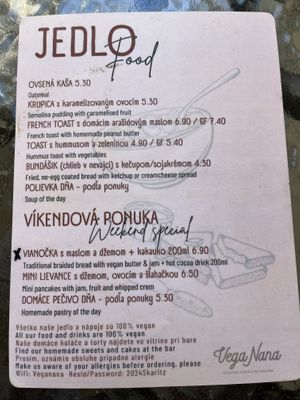 JEDLO
Food
OVSENÁ KAŠA 5.30
Oatmeal
KRUPICA s karamelizovaným ovocím 5.30
Semolina pudding with caramelised fruit
FRENCH TOAST s domácim arašidovým maslom 6.90 / GF 7.40
French toast with homemade peanut butter
TOAST s hummusom a zeleninou 4.90 / GF 5.40
Hummus toast with vegetables
BUNDÁŠIK (chlieb v nevajci) s kečupom/sojakrémom 4.30
Fried, no-egg coated bread with ketchup or creamcheese spread
POLIEVKA DŇA - podľa ponuky
Soup of the day
VÍKENDOVÁ PONUKA
Weekend special
x VIANOČKA s maslom a džemom + kakauko 200ml 6.90
Traditional braided bread with vegan butter & jam + hot cocoa drink 200ml
MINI LIEVANCE s džemom, ovocím a šľahačkou 6.50
Mini pancakes with jam, fruit and whipped crem
DOMÁCE PEČIVO DŇA - podľa ponuky 5.30
Homemade pastry of the day
Všetko naše jedlo a nápoje sú 100% vegan
All our food and drinks are 100% vegan
Naše domáce koláče a torty nájdete vo vitríne pri bare
Find our homemade sweets and cakes at the bar
Prosím, oznámte obsluhe prípadné alergie
Make us aware of your allergies before ordering, please
Wifi: Vegananа Heslo/Password: 2024Skaritz
Vega Nana